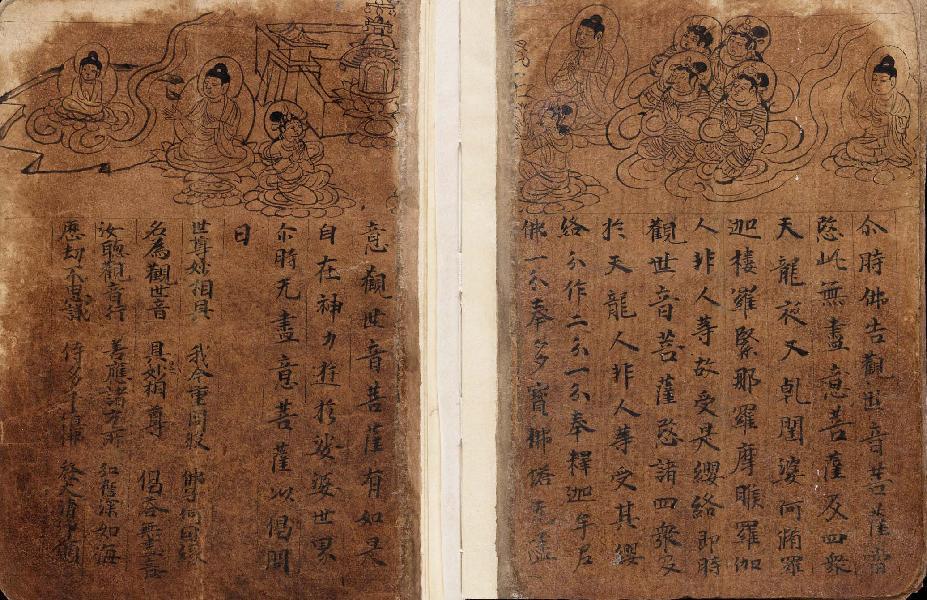 尒時佛告觀世音菩薩當
愍此無盡意菩薩及四衆
天龍夜叉乹闥婆阿脩羅
迦樓羅緊那羅摩睺羅伽
人非人等故受是纓絡即時
觀世音菩薩愍諸四衆及
扵天龍人非人等受其纓
絡分作二分一分奉釋迦牟尼
佛一分奉多寶佛塔无盡
意觀世音菩薩有如是
自在神力遊扵娑婆世界
尒時无盡意菩薩以偈問
曰
世尊妙相具 我今重問彼 佛子何因緣
名為觀世音 具妙相尊 偈荅無盡意
汝聴觀音行 善應諸方所 弘誓深如海
歷劫不思議 侍多千億佛 發大清淨願